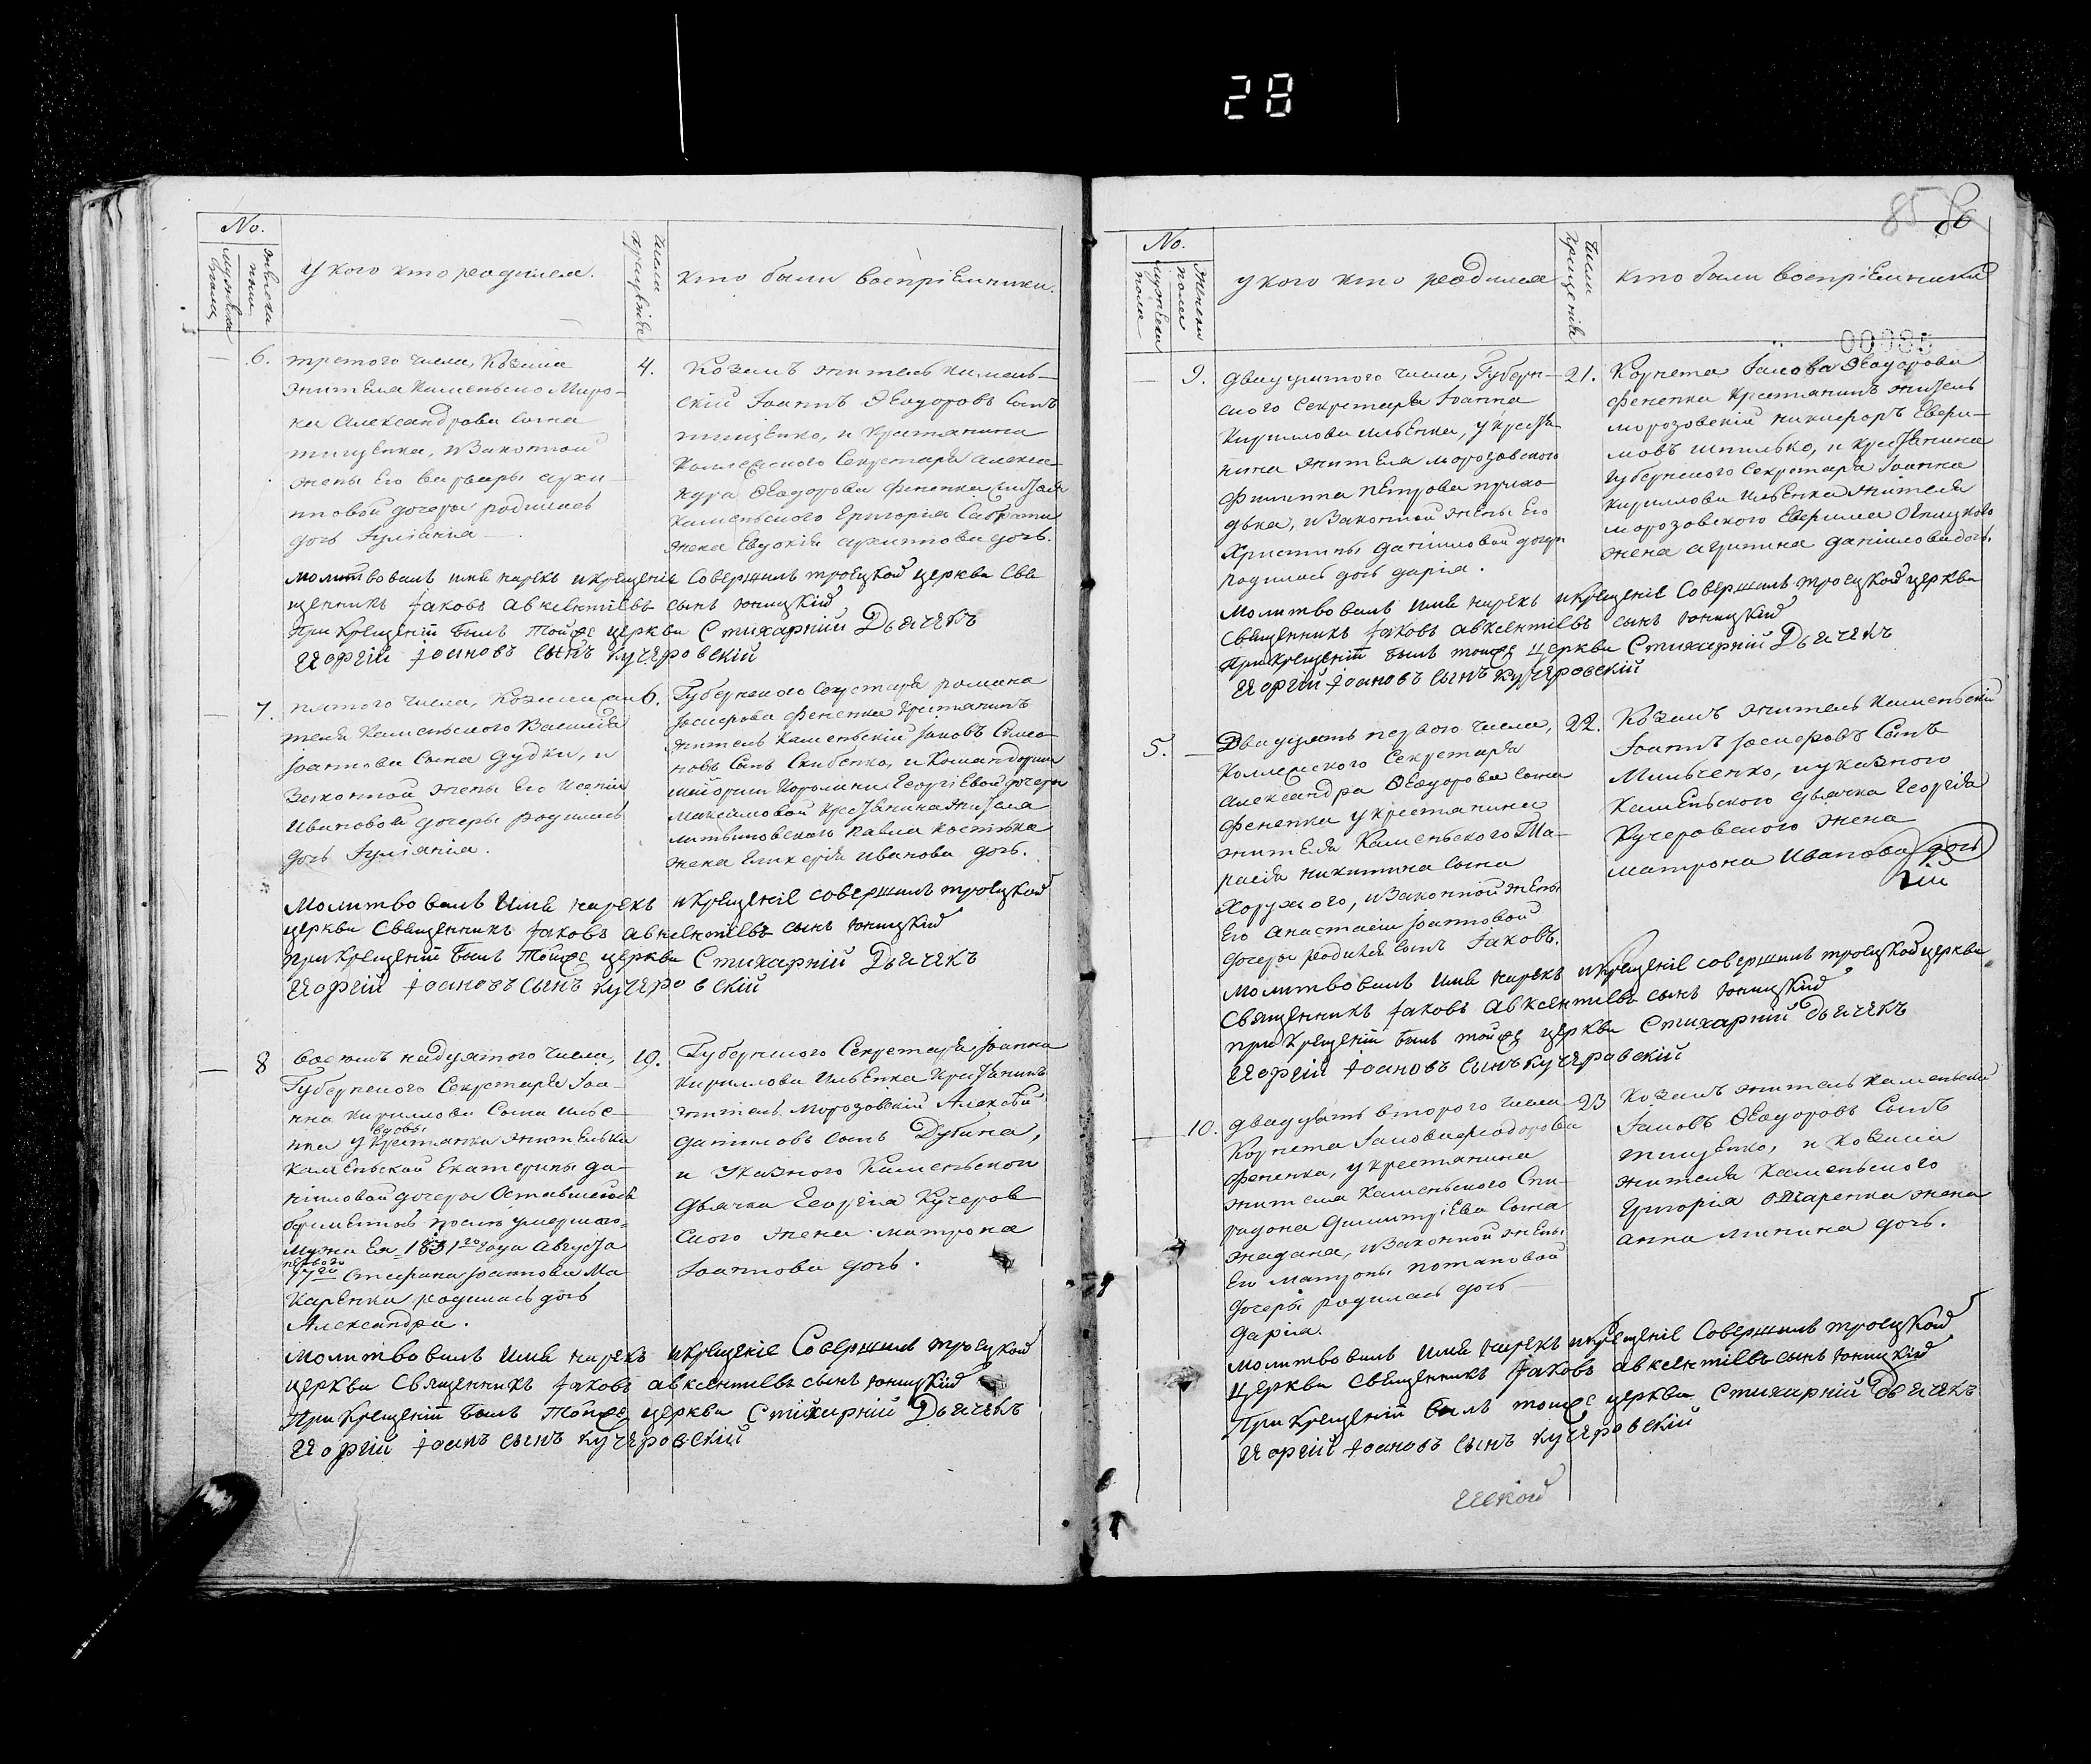 28
No.
мужеска пола
женска пола
У кого кто родился.
число крещенія
кто были воспріемники.
6.
третого числа, Козака
жителя Каменьского Миро-
на Александрова сына
тищенка, и законной
жены его варвары архи-
повой дочери родилась
дочь Іуліанія
4.
Козакъ житель камень-
скій Іоаннъ Ѳеодоровъ сынъ
тищенко, и крестянина
Коллежского Секретаря алексан-
дра Ѳеодорова Фененка жителя
каменьского Григорія
жена Евдокія архипова дочь.
молитвовалъ имя нарекъ и крещеніе совершилъ троецкой церкви Свя
щенникъ Іаковъ авксентіевъ сынъ юницкій
при крещеніи былъ тойже церкви Стихарній Дьячекъ
Георгій Іоановъ сынъ кучеровскій
7.
пятого числа, Козака жи
теля Каменьского Василія
Іоаннова сына дудки, и
законной жены его
Ивановой дочери родилась
дочь Іуліанія.
6.
Губернского Секретаря романа
Іосифова Фененка Крестянинъ
житель каменьскій Іаковъ
новъ сынъ Скибенко, и
Георгіевой дочери
Максимовой крестянина жителя
литвиновского Павла костюка
жена гликерія Иванова дочь.
Молитвовалъ имя нарекъ и крещеніе совершилъ троецкой
церкви Священникъ Іаковъ авксентіевъ сынъ юницкій
при крещеніи былъ тойже церкви Стихарній Дьячекъ
Георгій Іоановъ сынъ кучеровскій
8
восемьнадцятого числа,
Губернского Секретаря Іоа-
нна кириллова сына илье-
нка у вдовы крестянки жительки
каменьской Екатерины да-
ніиловой дочери оставшейся
беременной послѣ умершого
мужа ея 1831го года Августа
первого
Стефана Іоаннова Ма
каренка родилась дочь
Александра.
19.
Губернского Секретаря Іоанна
кириллова ильенка крестянинъ
житель морозовскій Алексѣй
даниловъ сынъ Дубина,
и указного Каменьской
Дьячка Георгія Кучеров
ского жена матрона
Іоаннова дочь.
молитвовалъ имя нарекъ и крещеніе Совершилъ троецкой
церкви Священникъ Іаковъ авксентіевъ сынъ юницкій
При крещеніи былъ тойже церкви Стихарній Дьячекъ
Георгій Іоанъ сынъ кучеровскій
85
86
No.
мужеска пола
женска пола
у кого кто родился
число крещенія
кто были воспріемники
00085
9.
двадцятого числа, Губерн-
ского секретаря Іоанна
Кириллова ильенка, у крестя-
нина жителя морозовского
Филиппа петрова
и законной жены его
Христины даніиловой дочери
родилась дочь дарія.
21.
Корнета Іакова Ѳеодорова
Фененка Крестянинъ житель
морозовскій никифоръ
мовъ шпилько, и крестянина
губернского Секретаря Іоанна
кириллова ильенка жителя
морозовского
жена агрипина даніилова дочь.
молитвовалъ имя нарекъ и крещеніе Совершилъ троецкой церкви
священникъ Іаковъ авксентіевъ сынъ юницкій
при крещеніи былъ тойже церкви Стихарній Дьячекъ
Георгій Іоановъ сынъ кучеровскій
5.
Двадцять первого числа,
Коллежского Секретаря
александра Ѳеодорова сына
Фененка у крестянина
жителя Каменьского Та-
расія никитина сына
Хоружого, и законной жены
его анастасіи Іоанновой
дочери родился сынъ Іаковъ.
22.
Козакъ житель каменьскій
Іоаннъ Іосифовъ сынъ
Мильченко, и указного
каменьского дьячка Георгія
Кучеровского жена
матрона Иванова дочь
молитвовалъ имя нарекъ и крещеніе совершилъ троецкой церкви
Священникъ Іаковъ авксентіевъ сынъ юницкій
при крещеніи былъ тойже церкви Стихарній дьячекъ
Георгій Іоановъ сынъ кучеровскій
10.
двадцять второго числа
Корнета Іакова Ѳеодорова
Фененка, у крестянина
жителя каменьского Спи-
ридона димитріева сына
жадана, и законной жены
его матроны потаповой
дочери родилась дочь
дарія.
23
Козакъ житель каменьскій
Іаковъ Ѳеодоровъ сынъ
тищенко, и козака
жителя каменьского
Григорія жена
анна минина дочь.
молитвовалъ имя нарекъ и крещеніе Совершилъ троецкой
церкви Священникъ Іаковъ авксентіевъ сынъ юницкій
При крещеніи былъ тойже церкви Стихарній дьячекъ
Георгій Іоановъ сынъ кучеровскій